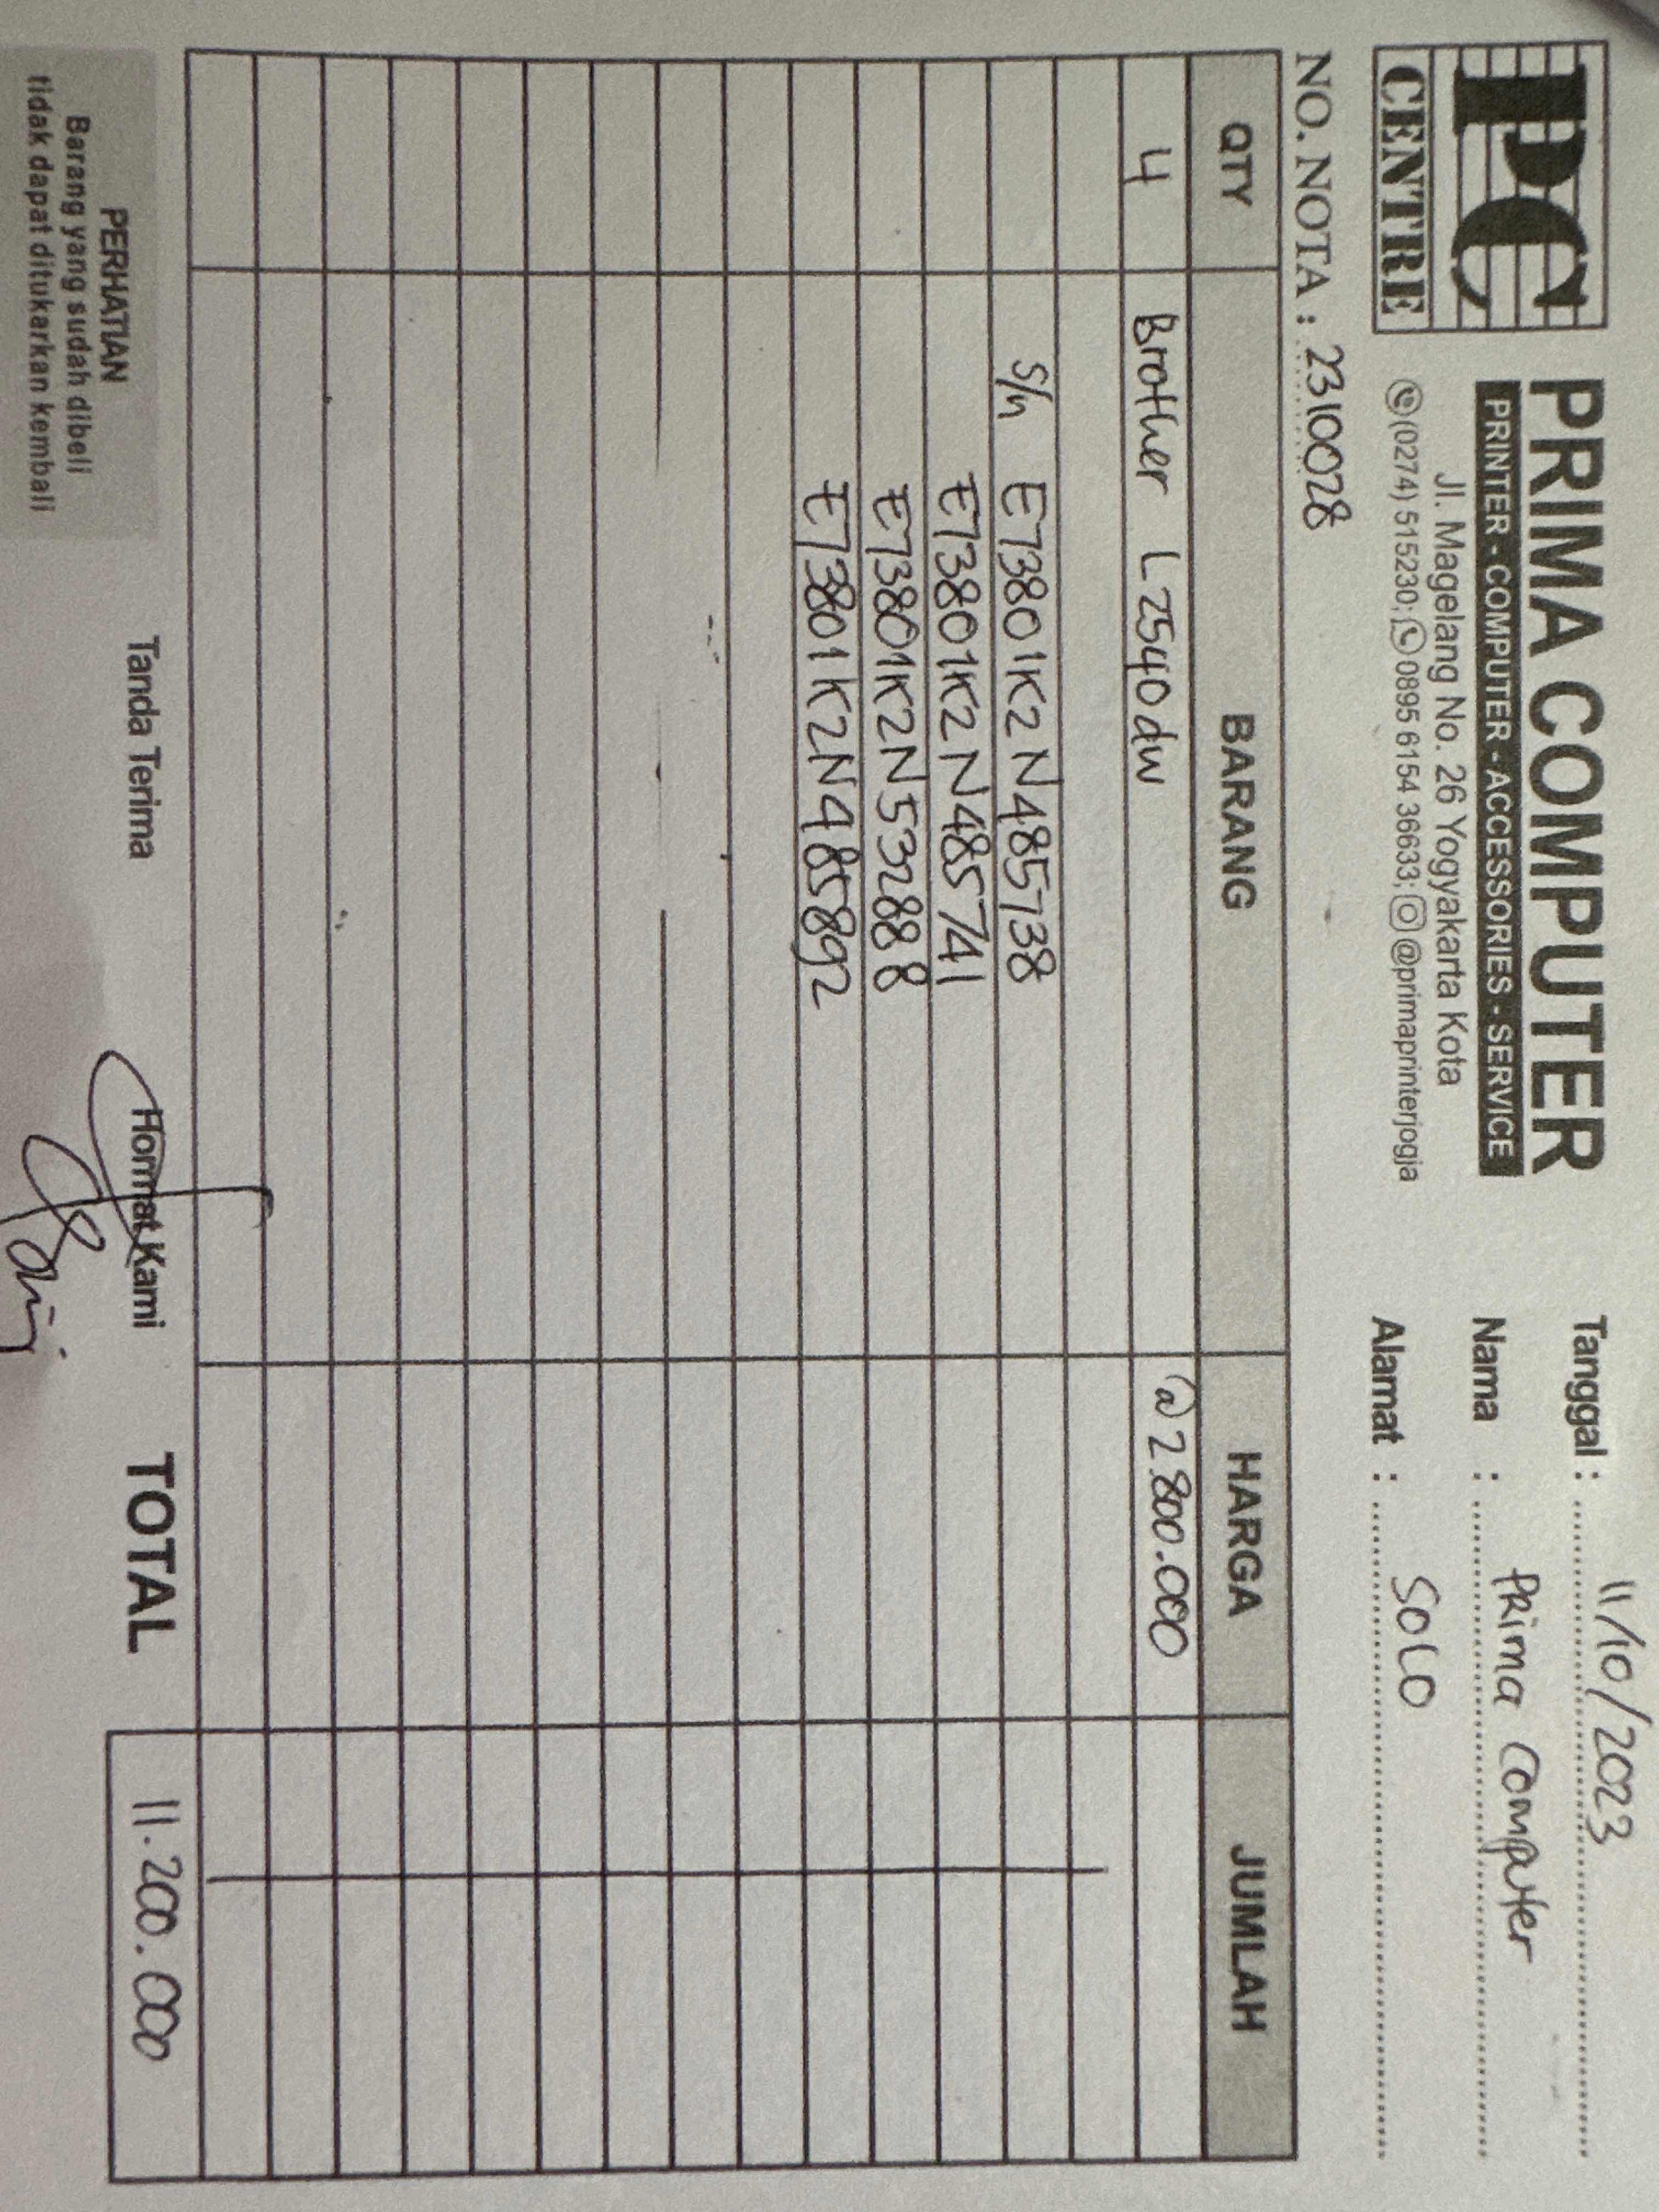 PC
CENTRE
PRIMA COMPUTER
PRINTER - COMPUTER - ACCESSORIES - SERVICE
Jl. Magelang No. 26 Yogyakarta Kota
(0274) 515230; 0895 6154 36633; @primaprinterjogja
Tanggal : 11/10/2023
Nama : Prima Computer
Alamat : SOLO
NO. NOTA : 2310028
QTY BARANG HARGA JUMLAH
4 Brother L2540dw @ 2.800.000
S/n E73801K2N485738
E73801K2N485741
E73801K2N533288
E73801K2N485892
PERHATIAN
Barang yang sudah dibeli
tidak dapat ditukarkan kembali
Tanda Terima
Hormat Kami
TOTAL 11.200.000